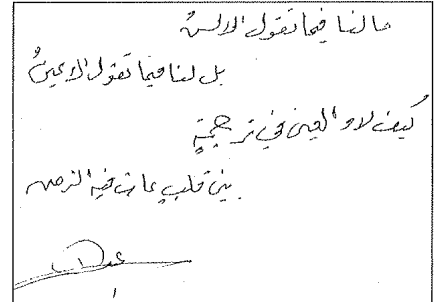 ما لنا فيما تقول الالسنُ
بل لنا فيما تقول الاعينُ
كيف لا و العين في ترجمةٍ
بين قلبٍ عاث فيه الزمن